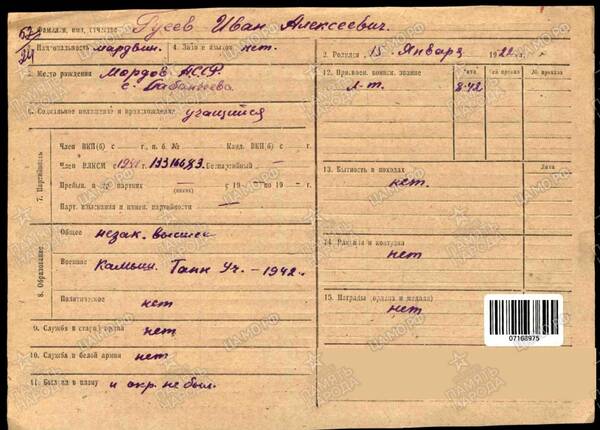 62/24
1. Фамилия, имя, отчество Гусев Иван Алексеевич.
3. Национальность мордвин. 4. Знан. языков нет.
5. Место рождения Мордов. АССР.
6. Социальное положение и происхождение учащийся
7. Партийность
Член ВКП(б) с — г., п. б. № — Канд. ВКП(б) с — г.
Член ВЛКСМ с 19331668 Беспартийный —
Пребыв. в др. партиях — (каких) с 19 — по 19 — г.
Парт. взыскания и партийности —
8. Образование
Общее незак. высшее
Военное Камыш. Танк Уч. — 1942.
Политическое нет
9. Служба в старой армии нет
10. Служба в белой армии нет
11. Был ли в плену и окр. не был.
2. Родился 15 Января 1922 г.
12. Присвоен. воинск. звание Дата № приказа Дата № приказа
Л-т. 8-42
13. Бытность в походах Дата
нет.
14. Ранения и контузии
нет
15. Награды (ордена и медали)
нет.
07168975
ПАМЯТЬ НАРОДА
ЦАМО.РФ